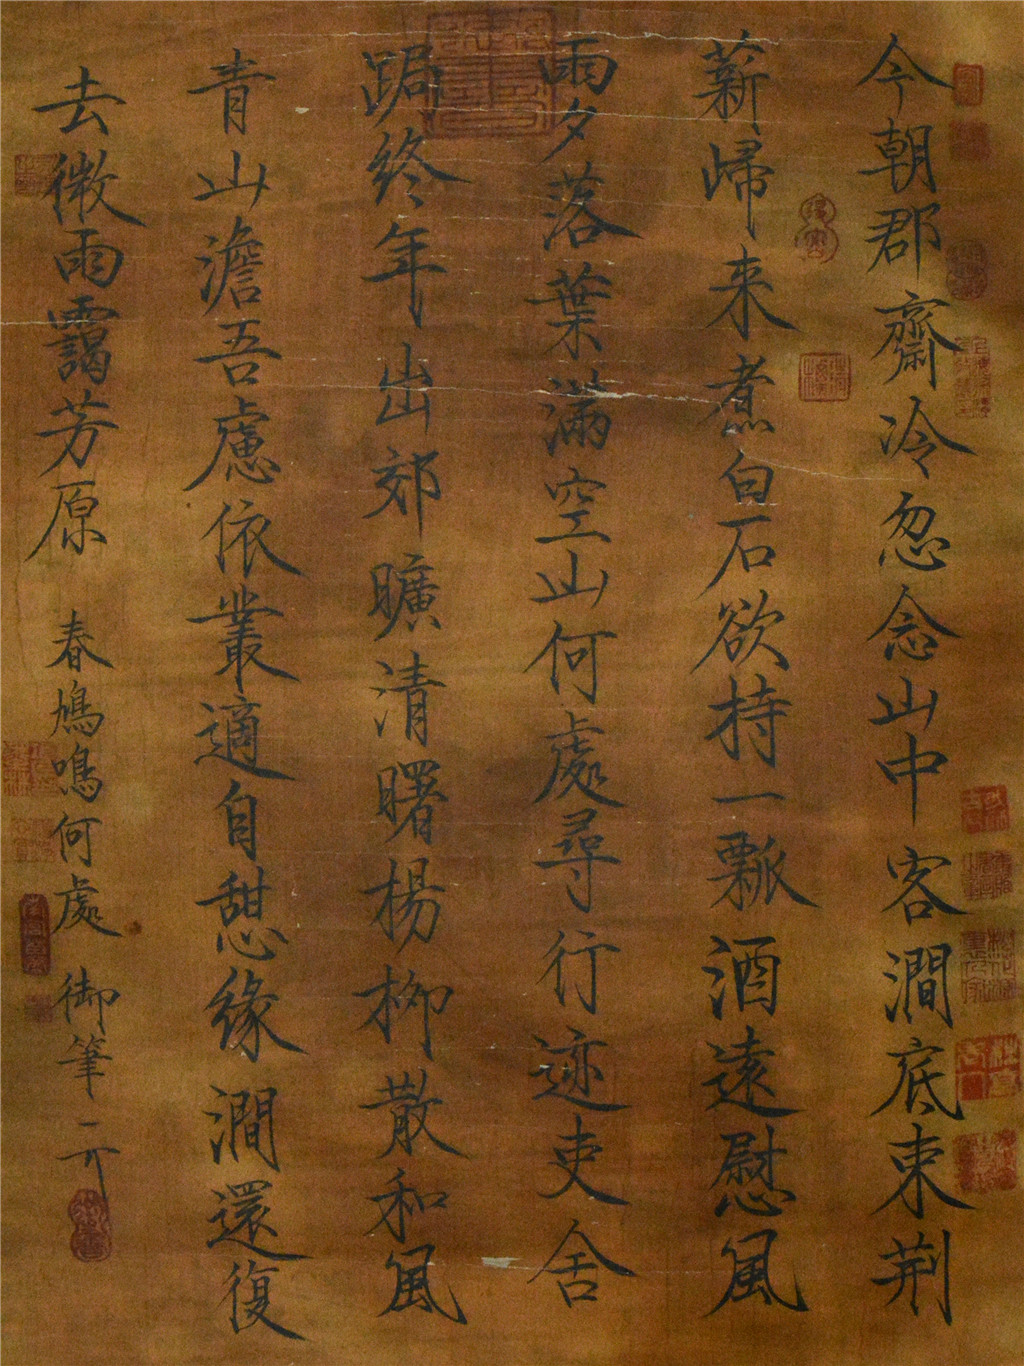 今朝郡齋冷忽念山中客澗底束荆
薪歸來煮白石欲持一瓢酒遠慰風
雨夕落葉滿空山何處尋行迹吏舍
跼終年出郊曠清曙楊柳散和風
青山澹吾慮依叢適自憇緣澗還復
去微雨靄芳原 春鳩鳴何處 御筆